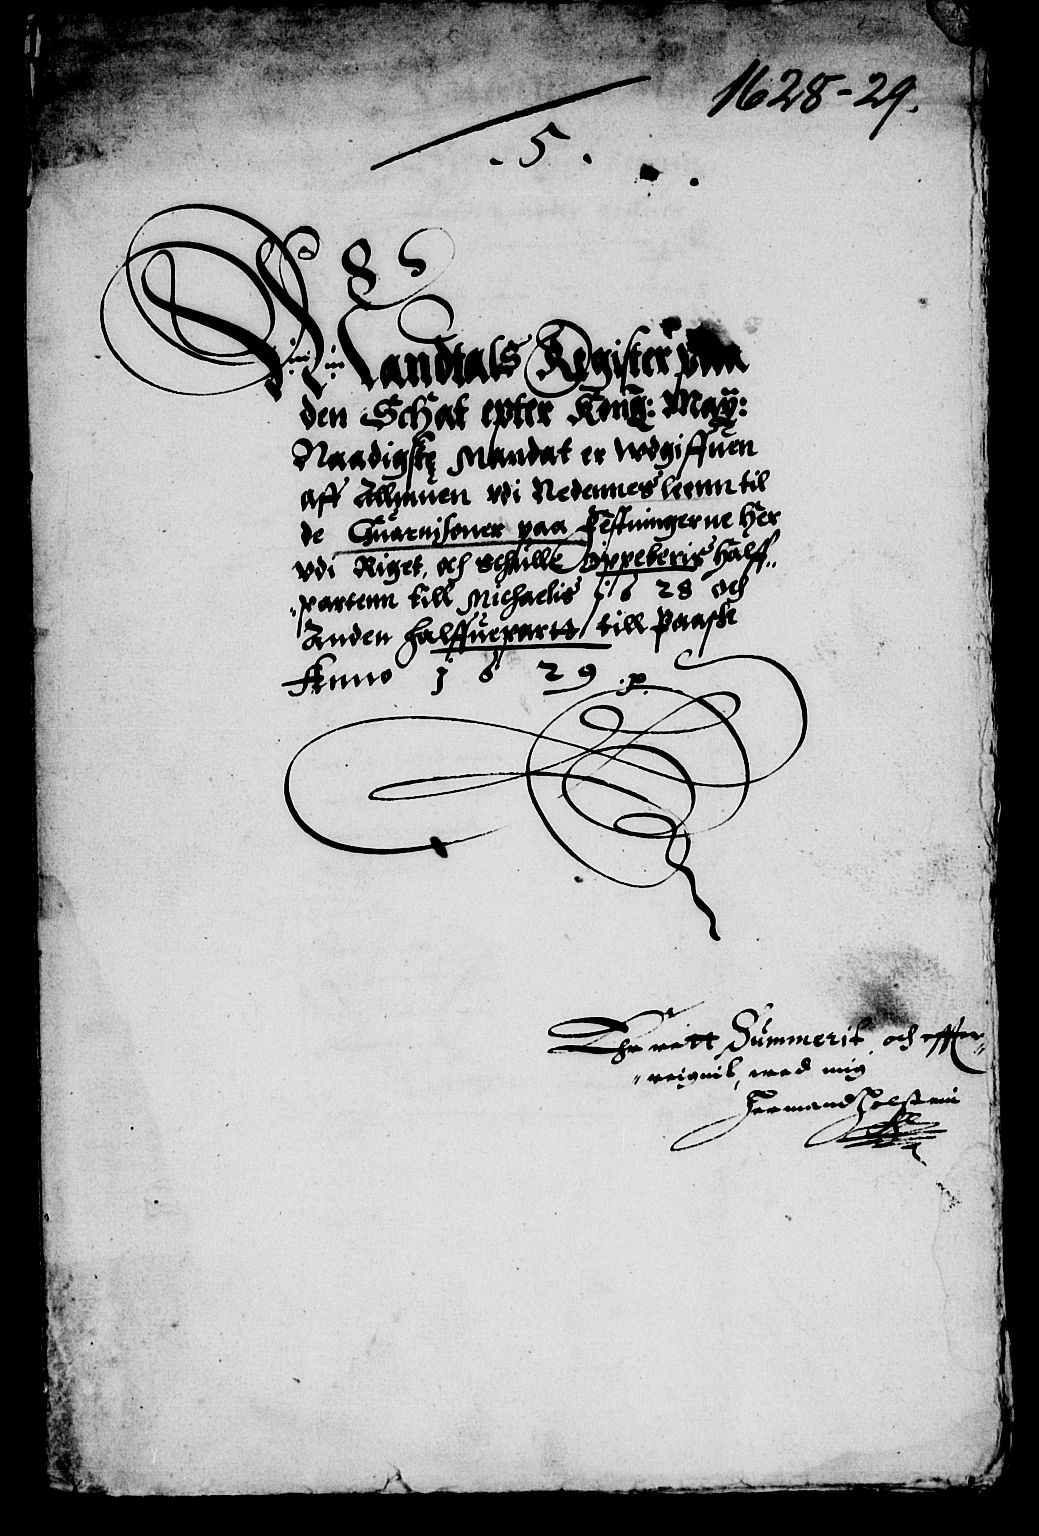 1628-29.
. 5 .
85
Mandtals Register paa
den Schat epter Kong: May:
Naadigste Mandat er wdgiffuen
aff Allmuen vdi Nedennes leenn til
de Guarnisoner paa Festningerne her
vdi Riget, och schulle Oppeberis halff„
„partenn till Michaelis 1628 och
Anden halffuepartt till Paaske
Anno 1629 .p.
Thr rett Summerit och offuer„
„ weignit, med mig
Hermand Holstenn